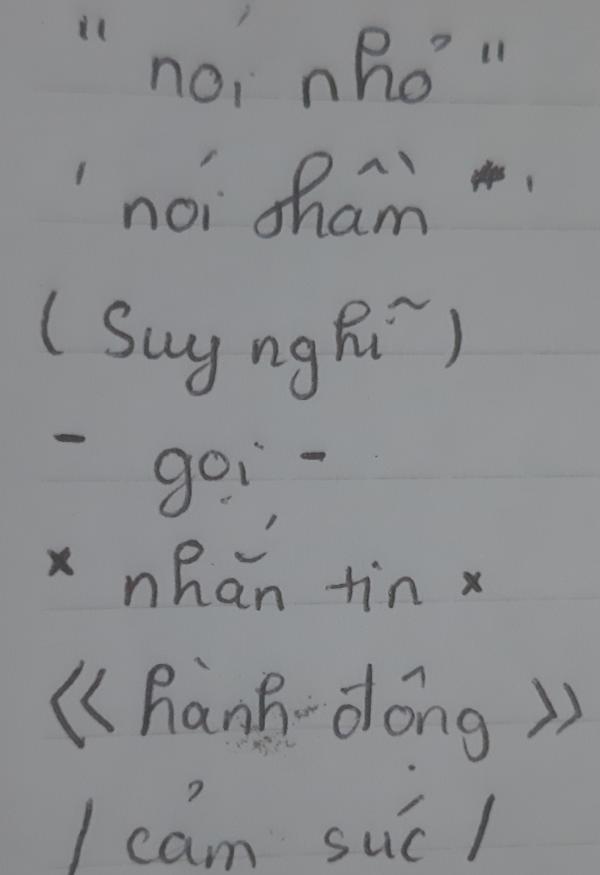 " nói nhỏ "
' nói thầm '
( Suy nghĩ )
- gọi -
* nhắn tin *
<< hành động >>
/ cảm súc /